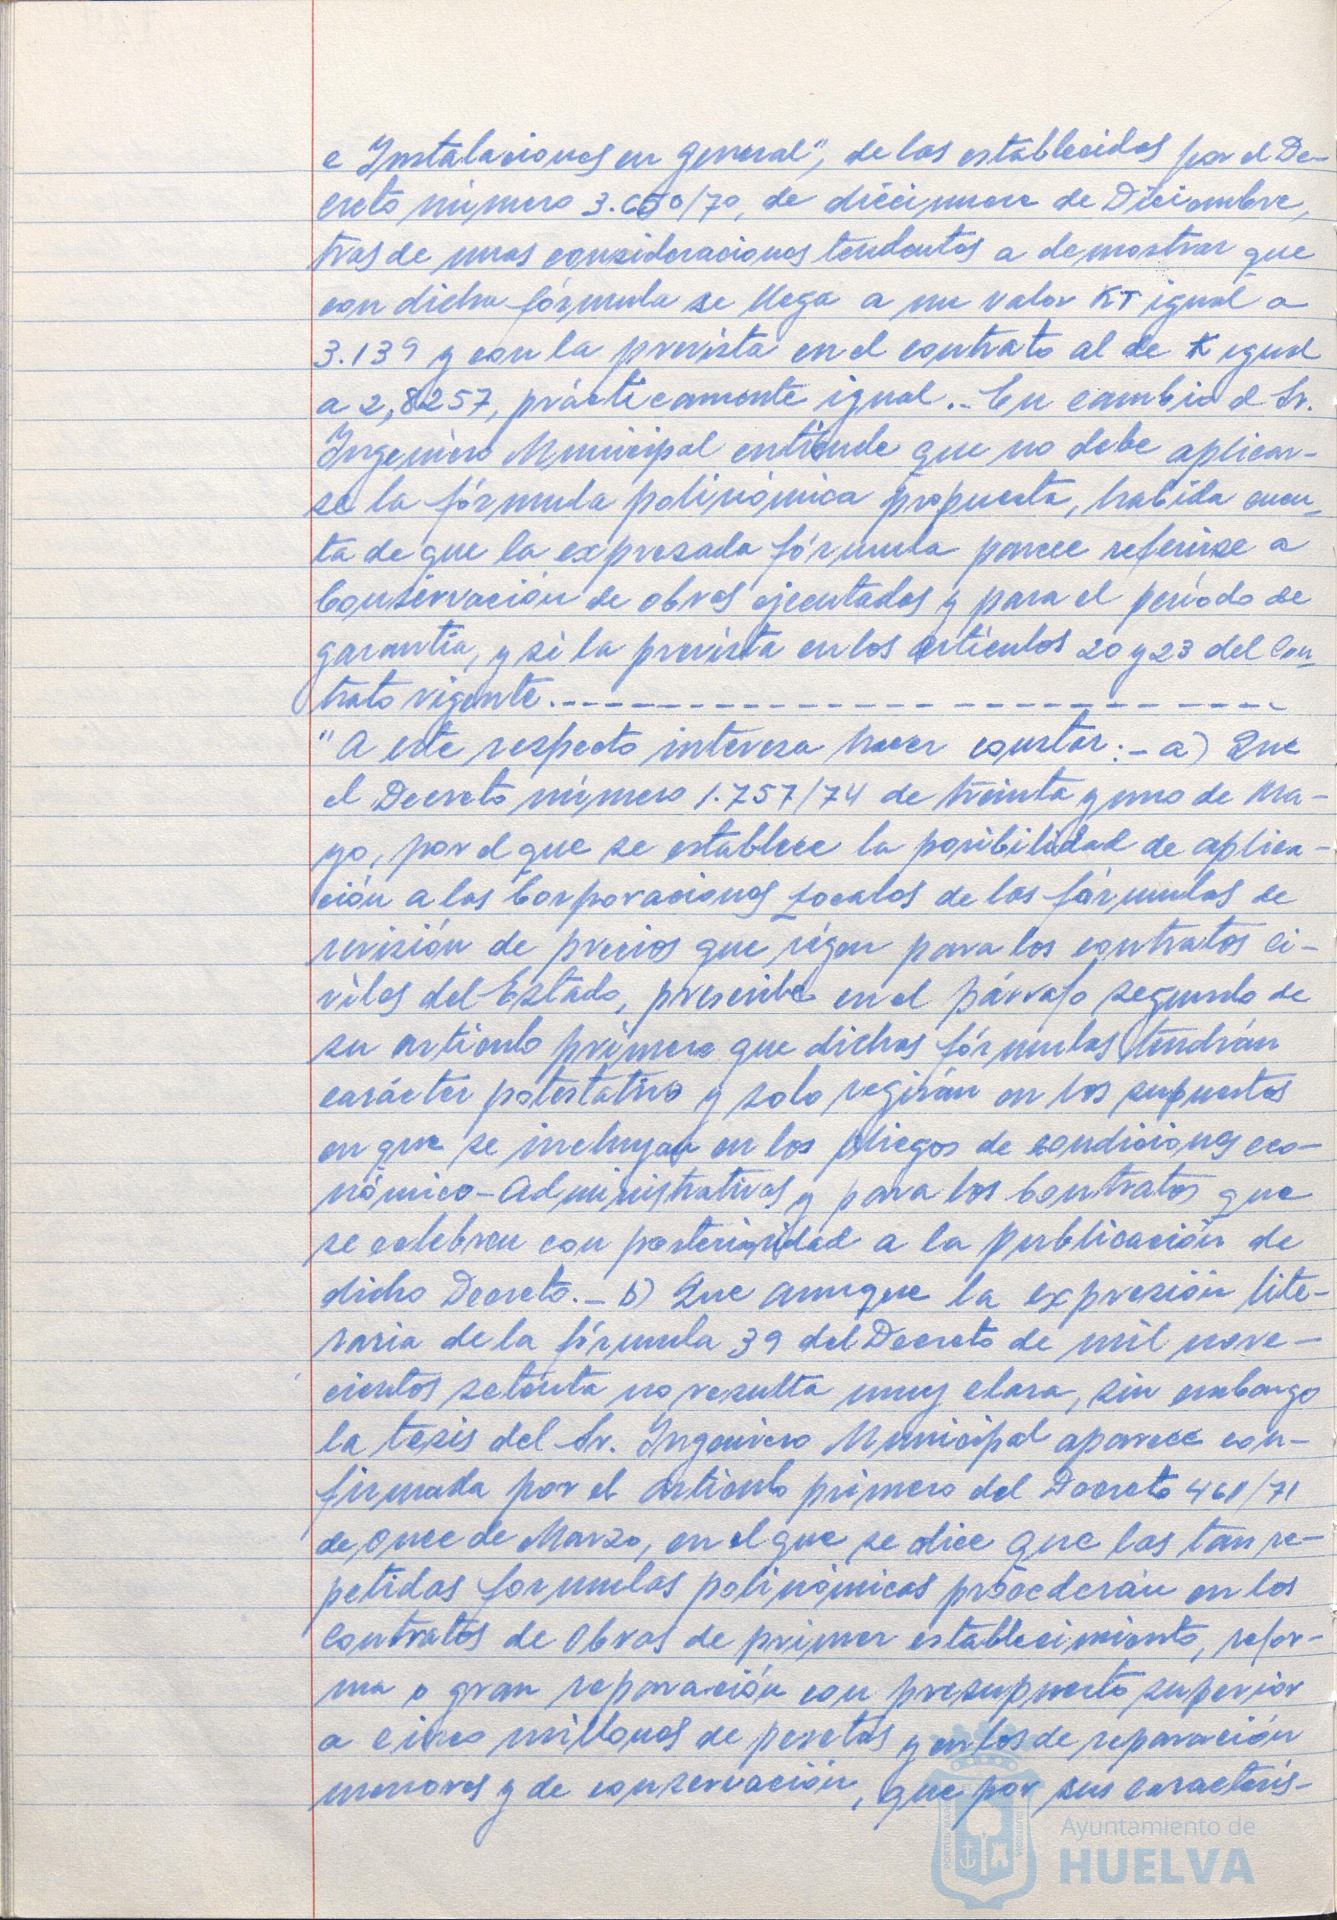 e Instalaciones en general", de las establecidas por el De-
creto número 3.650/70, de diecinueve de Diciembre,
tras de unas consideraciones tendentes a demostrar que
con dicha fórmula se llega a un valor KT igual a
3.139 y con la prevista en el contrato al de K igual
a 2,8257, prácticamente igual.- En cambio el Sr.
Ingeniero Municipal entiende que no debe aplicar-
se la fórmula polinómica propuesta, habida cuen-
ta de que la expresada fórmula parece referirse a
Conservación de obras ejecutadas y para el período de
garantía, y si la prevista en los artículos 20 y 23 del Con-
trato vigente.-------------------
"A este respecto interesa hacer constar:- a) Que
el Decreto número 1.757/74 de treinta y uno de Ma-
yo, por el que se establece la posibilidad de aplica-
ción a las Corporaciones Locales de las fórmulas de
revisión de precios que rigen para los contratos ci-
viles del Estado, prescribe en el párrafo segundo de
su artículo primero que dichas fórmulas tendrán
carácter potestativo y solo regirán en los supuestos
en que se incluyan en los pliegos de condiciones eco-
nómico-Administrativas y para los Contratos que
se celebren con posterioridad a la publicación de
dicho Decreto.- b) Que aunque la expresión lite-
raria de la fórmula 39 del Decreto de mil nove-
cientos setenta no resulta muy clara, sin embargo
la tesis del Sr. Ingeniero Municipal aparece con-
firmada por el artículo primero del Decreto 461/71
de Once de Marzo, en el que se dice que las tan re-
petidas formulas polinómicas procederán en los
Contratos de Obras de primer establecimiento, refor-
ma o gran reparación con presupuesto superior
a cinco millones de pesetas y en los de reparación
menores y de conservación, que por sus caracterís-
Ayuntamiento de
HUELVA